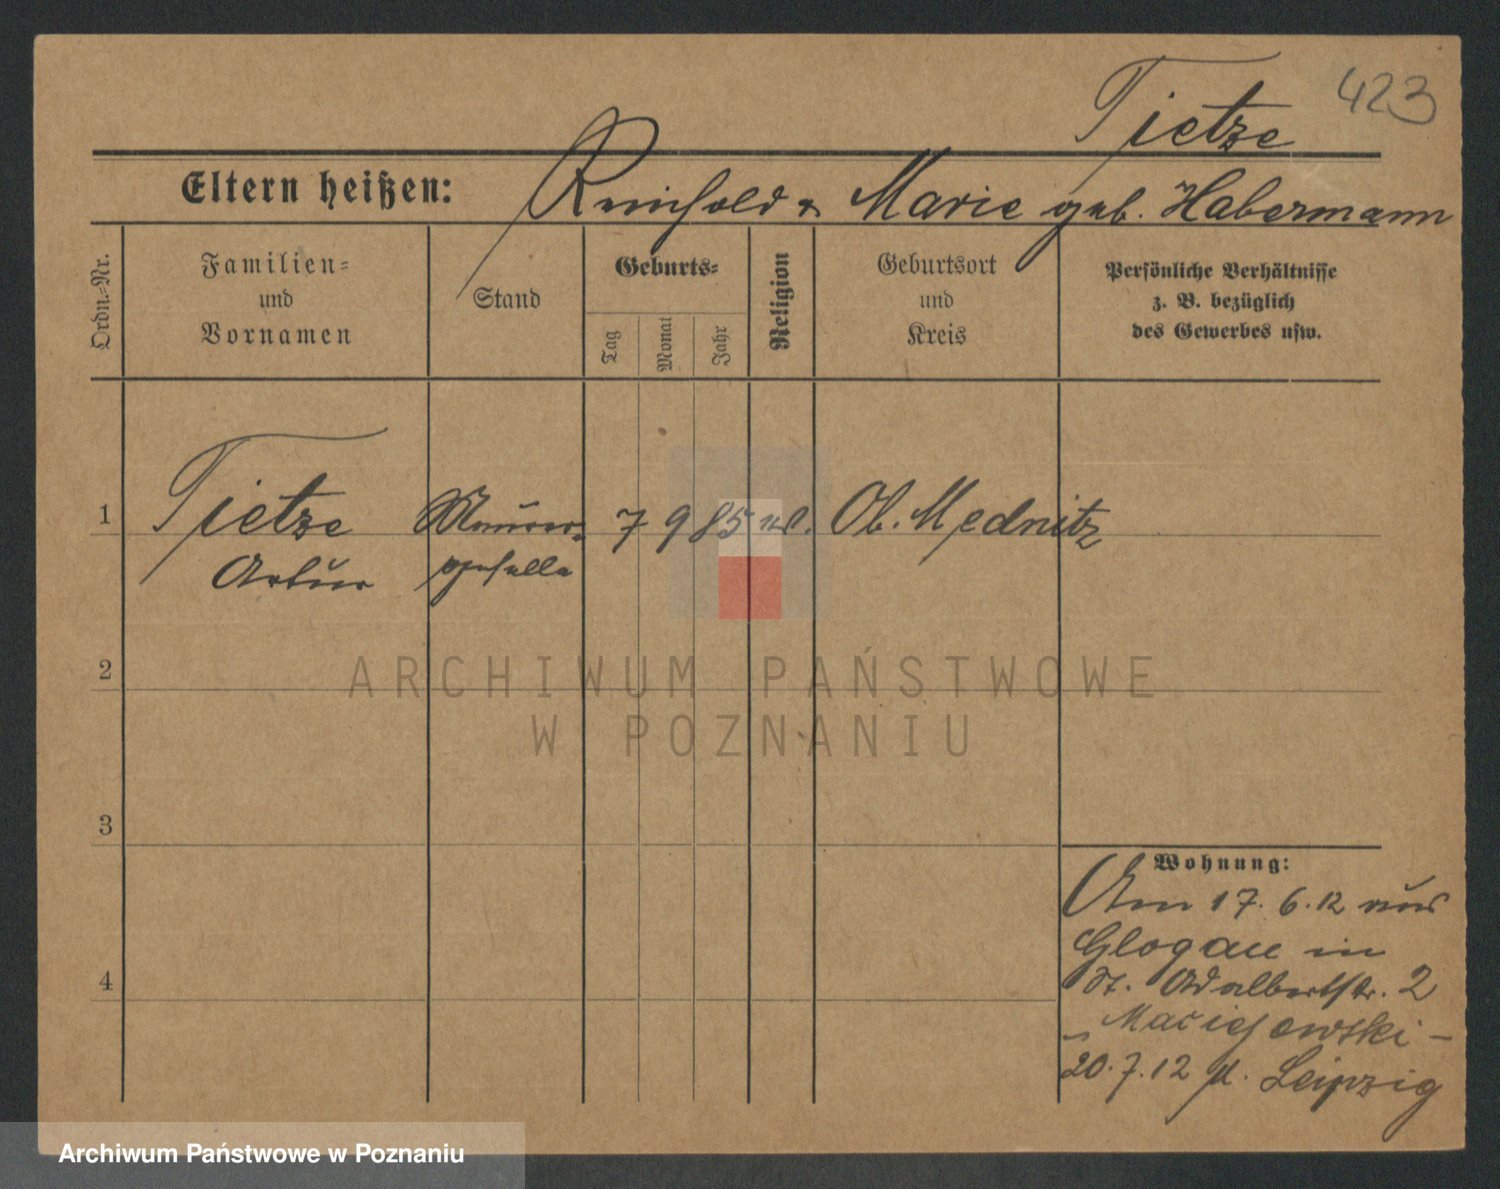 423
Tietze
Eltern heißen: Reinhold & Marie geb. Habermann
Ordn.=Nr.
Familien=
und
Vornamen
Stand
Geburts=
Tag
Monat
Jahr
Religion
Geburtsort
und
Kreis
Persönliche Verhältnisse
z. B. bezüglich
des Gewerbes usw.
1 Tietze Maurer= 7 9 85 Ob. Mednitz
Artur geselle
2
3
4
Wohnung:
Am 17. 6. 12 aus
Glogau in
St. Adalbertstr. 2
– Maciejewski –
20. 7. 12 n. Leipzig
ARCHIWUM PAŃSTWOWE
W POZNANIU
Archiwum Państwowe w Poznaniu